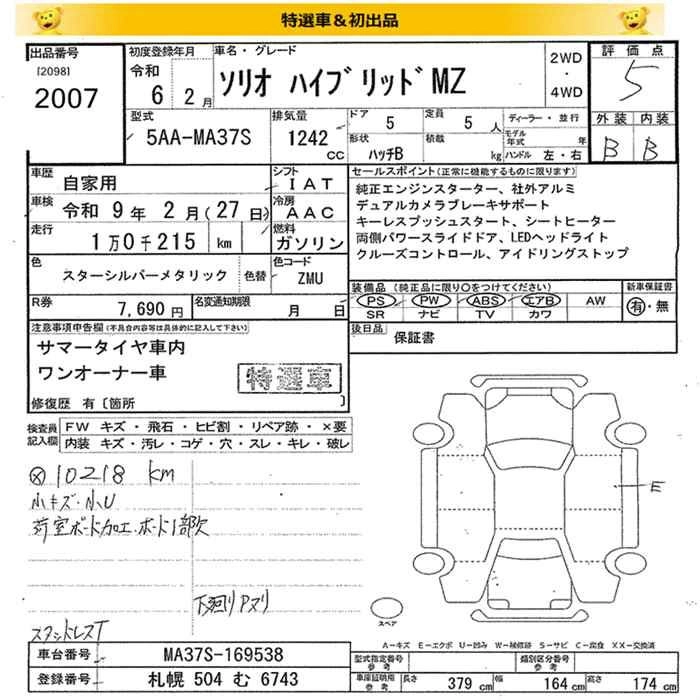 特選車＆初出品
出品番号
[2098]
2007
初度登録年月
令和
6 2月
車名・グレード
ソリオ ハイブリッドMZ
2WD
・
4WD
評価点
5
外装 内装
B B
型式
5AA-MA37S
排気量
1242 cc
ドア 5
定員 5 人
形状
ハッチB
積載 kg
ディーラー・並行
モデル年式 年
ハンドル 左・右
車歴
自家用
シフト
IAT
車検 令和 9年 2月(27日)
冷房
AAC
走行
1万0千215 km
燃料
ガソリン
色
スターシルバーメタリック
色替
色コード
ZMU
R券
7,690円
名変通知期限
月 日
セールスポイント(正常に機能するものに限ります)
純正エンジンスターター、社外アルミ
デュアルカメラブレーキサポート
キーレスプッシュスタート、シートヒーター
両側パワースライドドア、LEDヘッドライト
クルーズコントロール、アイドリングストップ
装備品 (純正品に限り○をつけてください)
新車保証書
PS PW ABS エアB AW
SR ナビ TV カワ
有・無
後日品
保証書
注意事項申告欄(不具合内容等は具体的に記入して下さい)
サマータイヤ車内
ワンオーナー車
特選車
修復歴 有〔箇所
検査員記入欄
FW キズ・飛石・ヒビ割・リペア跡・×要
内装 キズ・汚レ・コゲ・穴・スレ・キレ・破レ
10218 km
小キズ・小U
荷室ボード加工・ボード1部欠
下廻りPヌリ
スタッドレスT
E
スペア
A－キズ E－エクボ U－凹み W－補修跡 S－サビ C－腐食 XX－交換済
車台番号
MA37S-169538
登録番号
札幌 504 む 6743
型式指定番号
参考
類別区分番号
参考
車庫証明用
参考
長さ 379 cm 幅 164 cm 高さ 174 cm